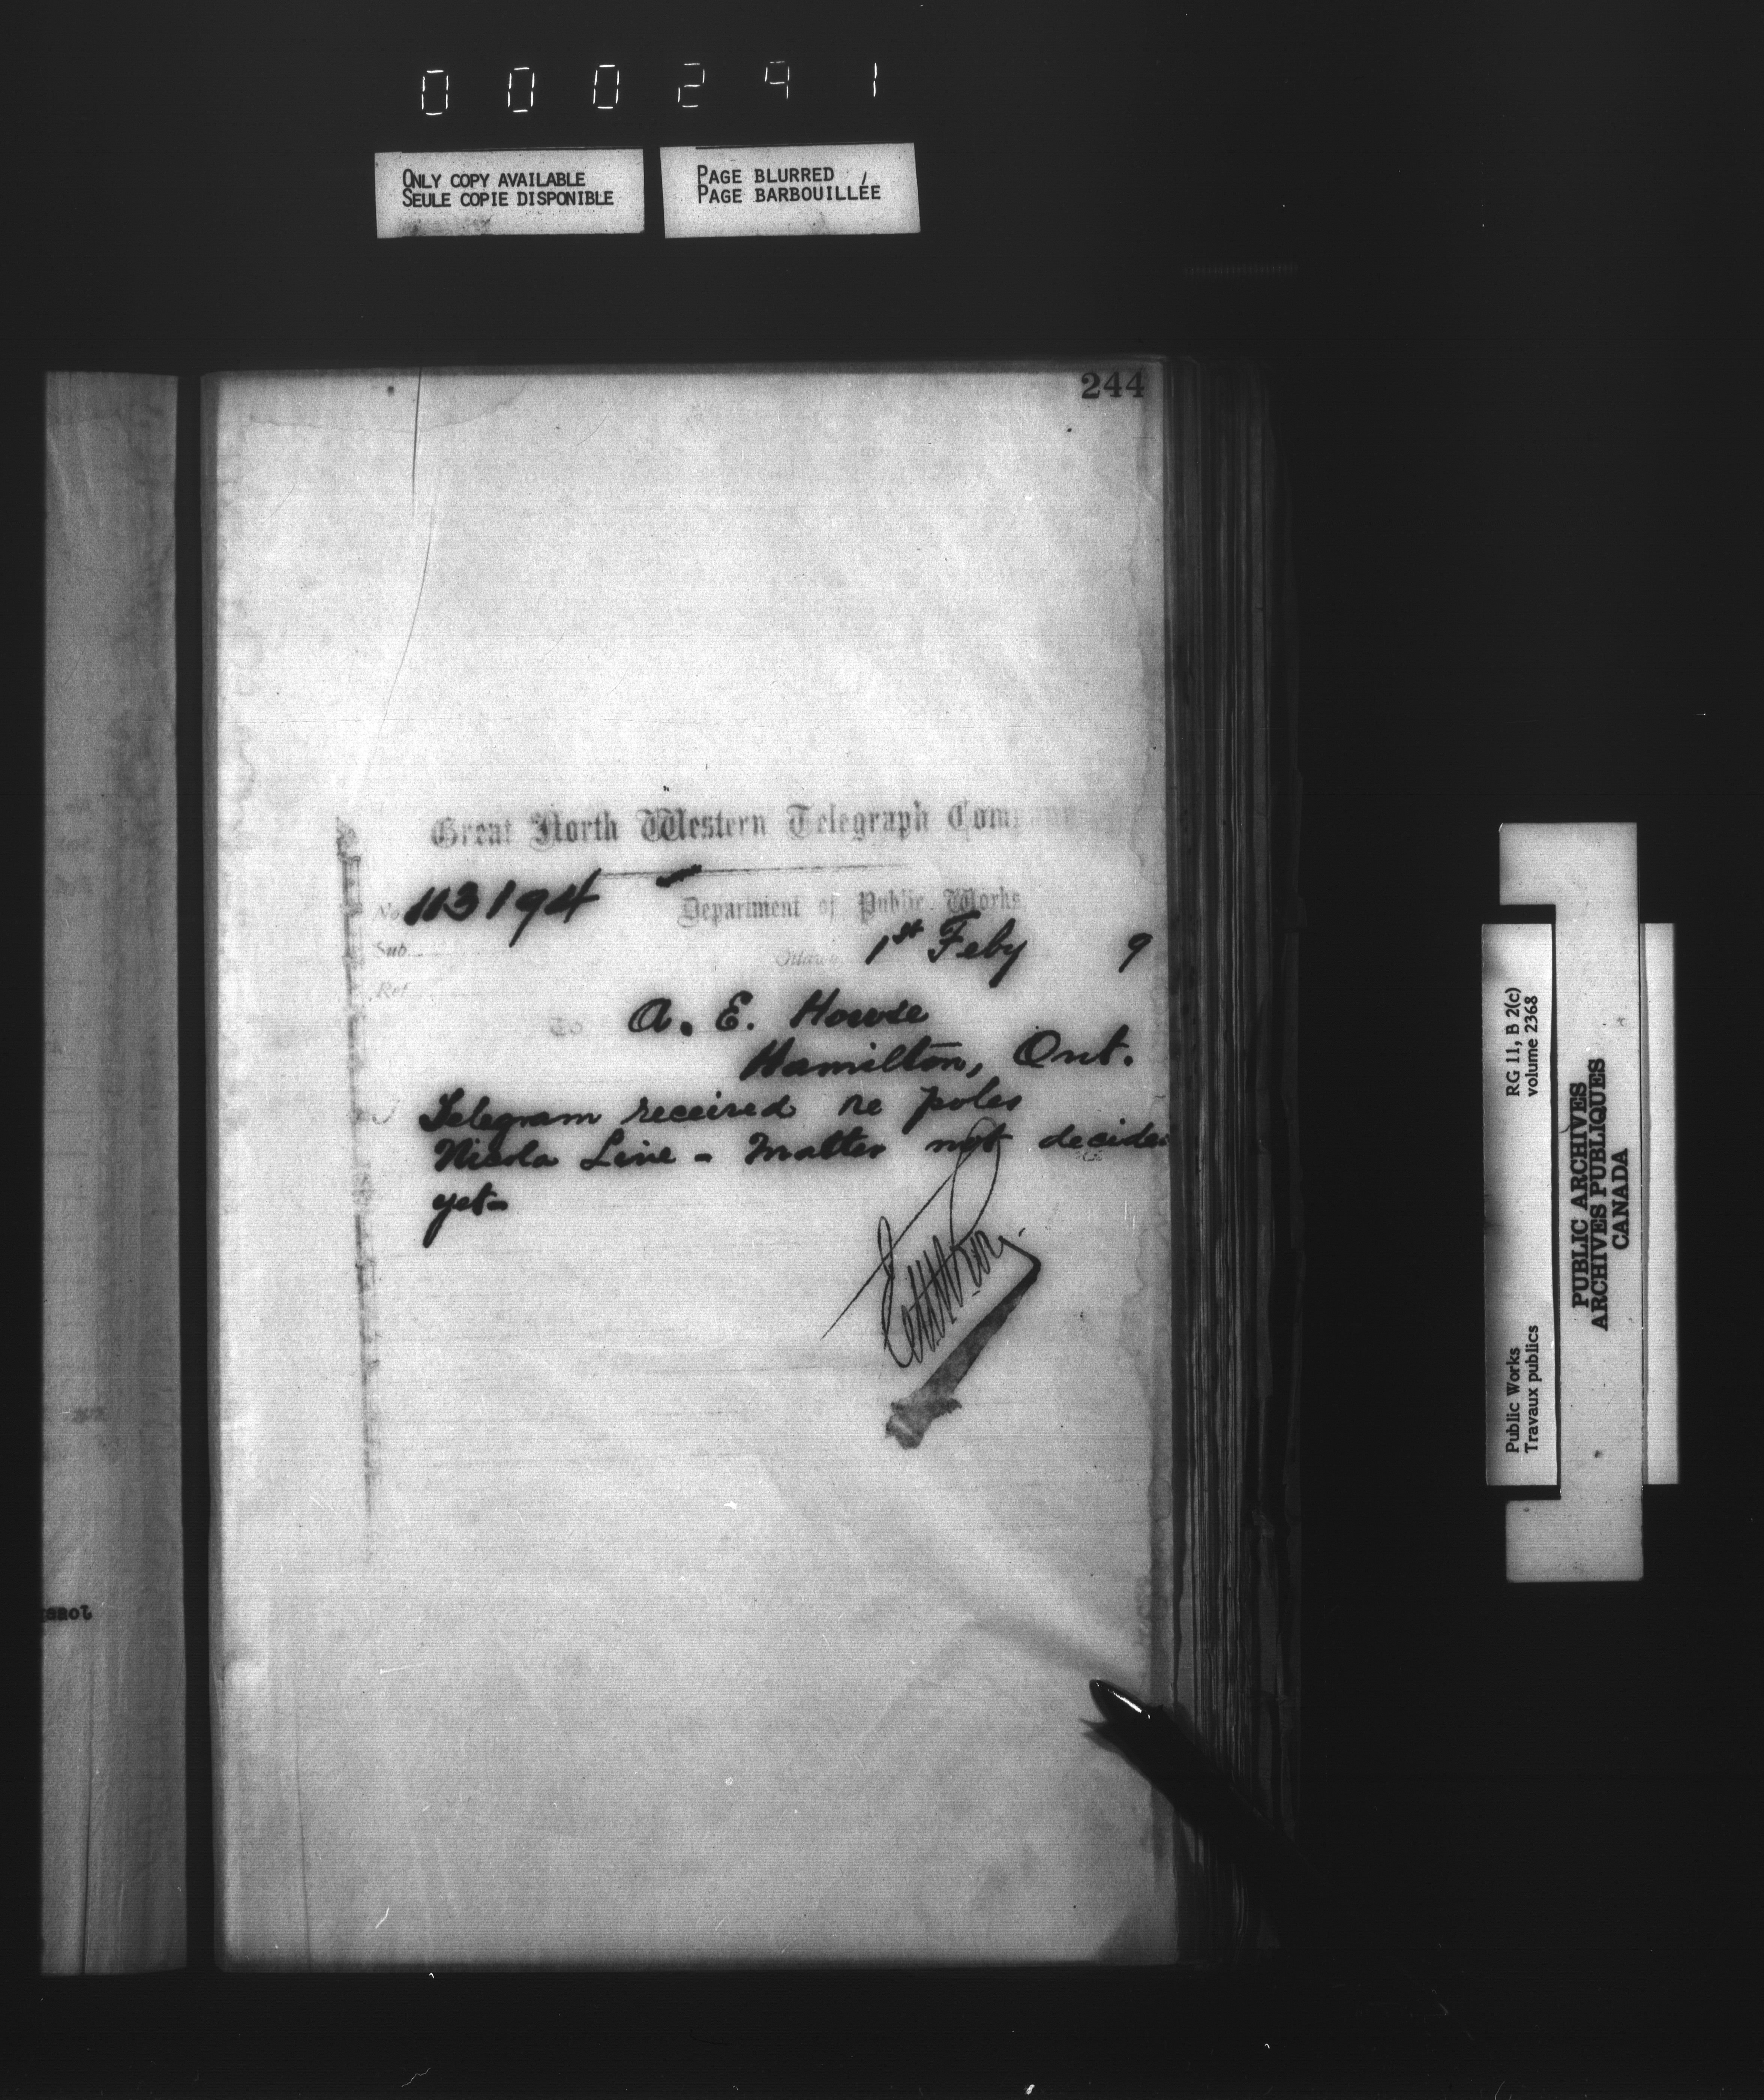 000291
ONLY COPY AVAILABLE
SEULE COPIE DISPONIBLE
PAGE BLURRED
PAGE BARBOUILLÉE
244
Great North Western Telegraph Company
No 113194
Department of Public Works
Sub
Ottawa 1st Feby 9
Ref
To A. E. Howse
Hamilton, Ont.
Telegram received re poles
Nicola Line - Matter not decided
yet-
RG 11, B 2(c)
volume 2368
Public Works
Travaux publics
PUBLIC ARCHIVES
ARCHIVES PUBLIQUES
CANADA